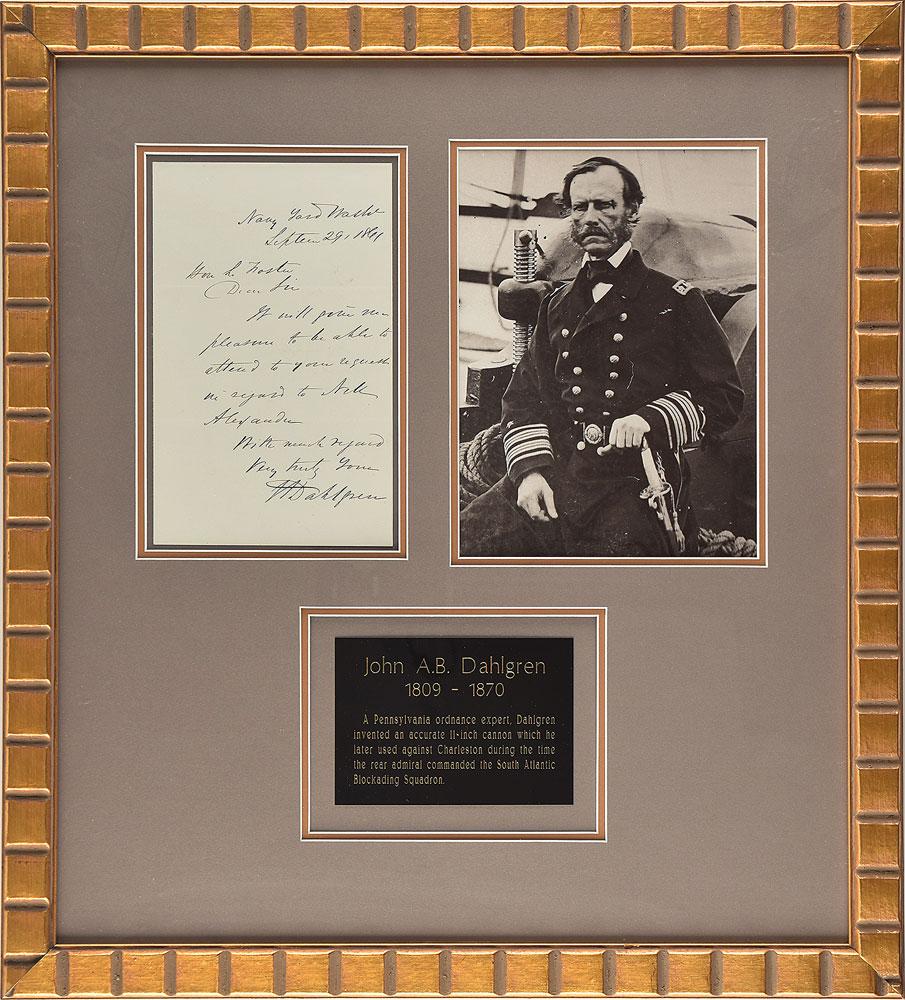 Navy Yard Washn
Septem 29, 1861
Hon L. Foster
Dear Sir
It will give me
pleasure to be able to
attend to your request
in regard to
Alexander
With much regard
Very truly Yours
Dahlgren
John A.B. Dahlgren
1809 - 1870
A Pennsylvania ordnance expert, Dahlgren
invented an accurate 11-inch cannon which he
later used against Charleston during the time
the rear admiral commanded the South Atlantic
Blockading Squadron.